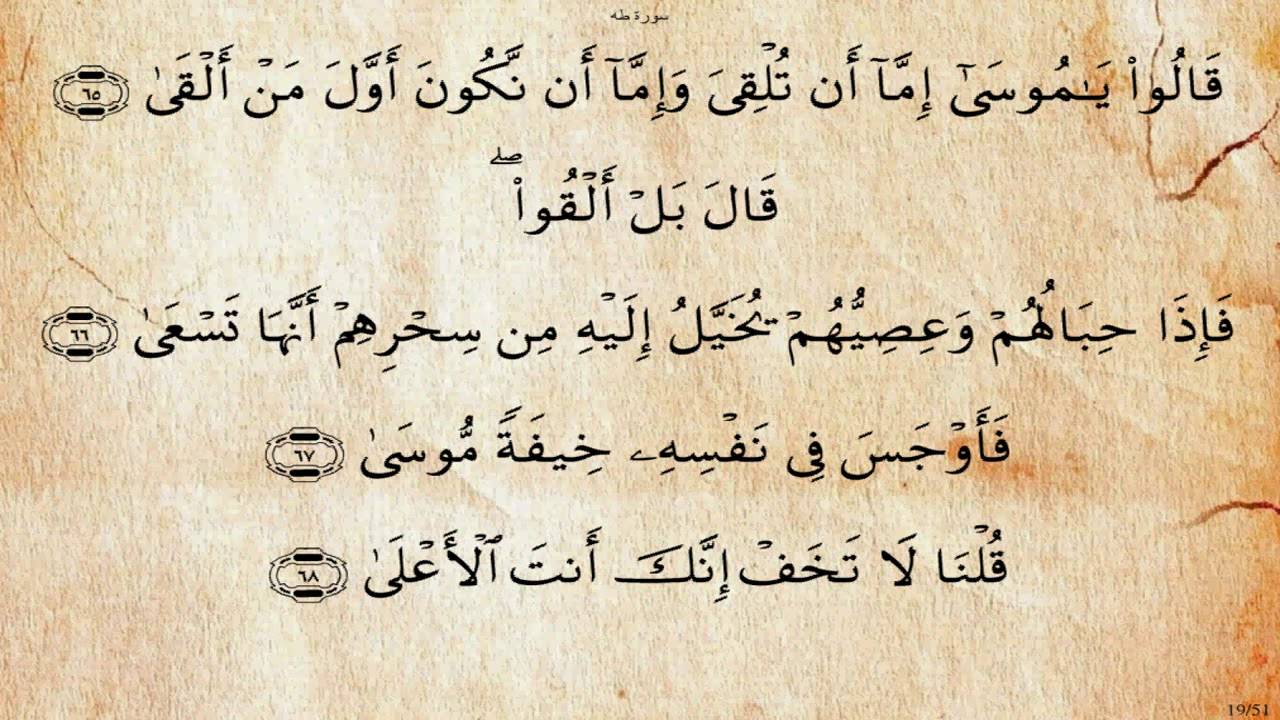 سورة طه
قَالُوا۟ يَـٰمُوسَىٰٓ إِمَّآ أَن تُلْقِىَ وَإِمَّآ أَن نَّكُونَ أَوَّلَ مَنْ أَلْقَىٰ ٦٥
قَالَ بَلْ أَلْقُوا۟ ۖ
فَإِذَا حِبَالُهُمْ وَعِصِيُّهُمْ يُخَيَّلُ إِلَيْهِ مِن سِحْرِهِمْ أَنَّهَا تَسْعَىٰ ٦٦
فَأَوْجَسَ فِى نَفْسِهِۦ خِيفَةً مُّوسَىٰ ٦٧
قُلْنَا لَا تَخَفْ إِنَّكَ أَنتَ ٱلْأَعْلَىٰ ٦٨
19/51